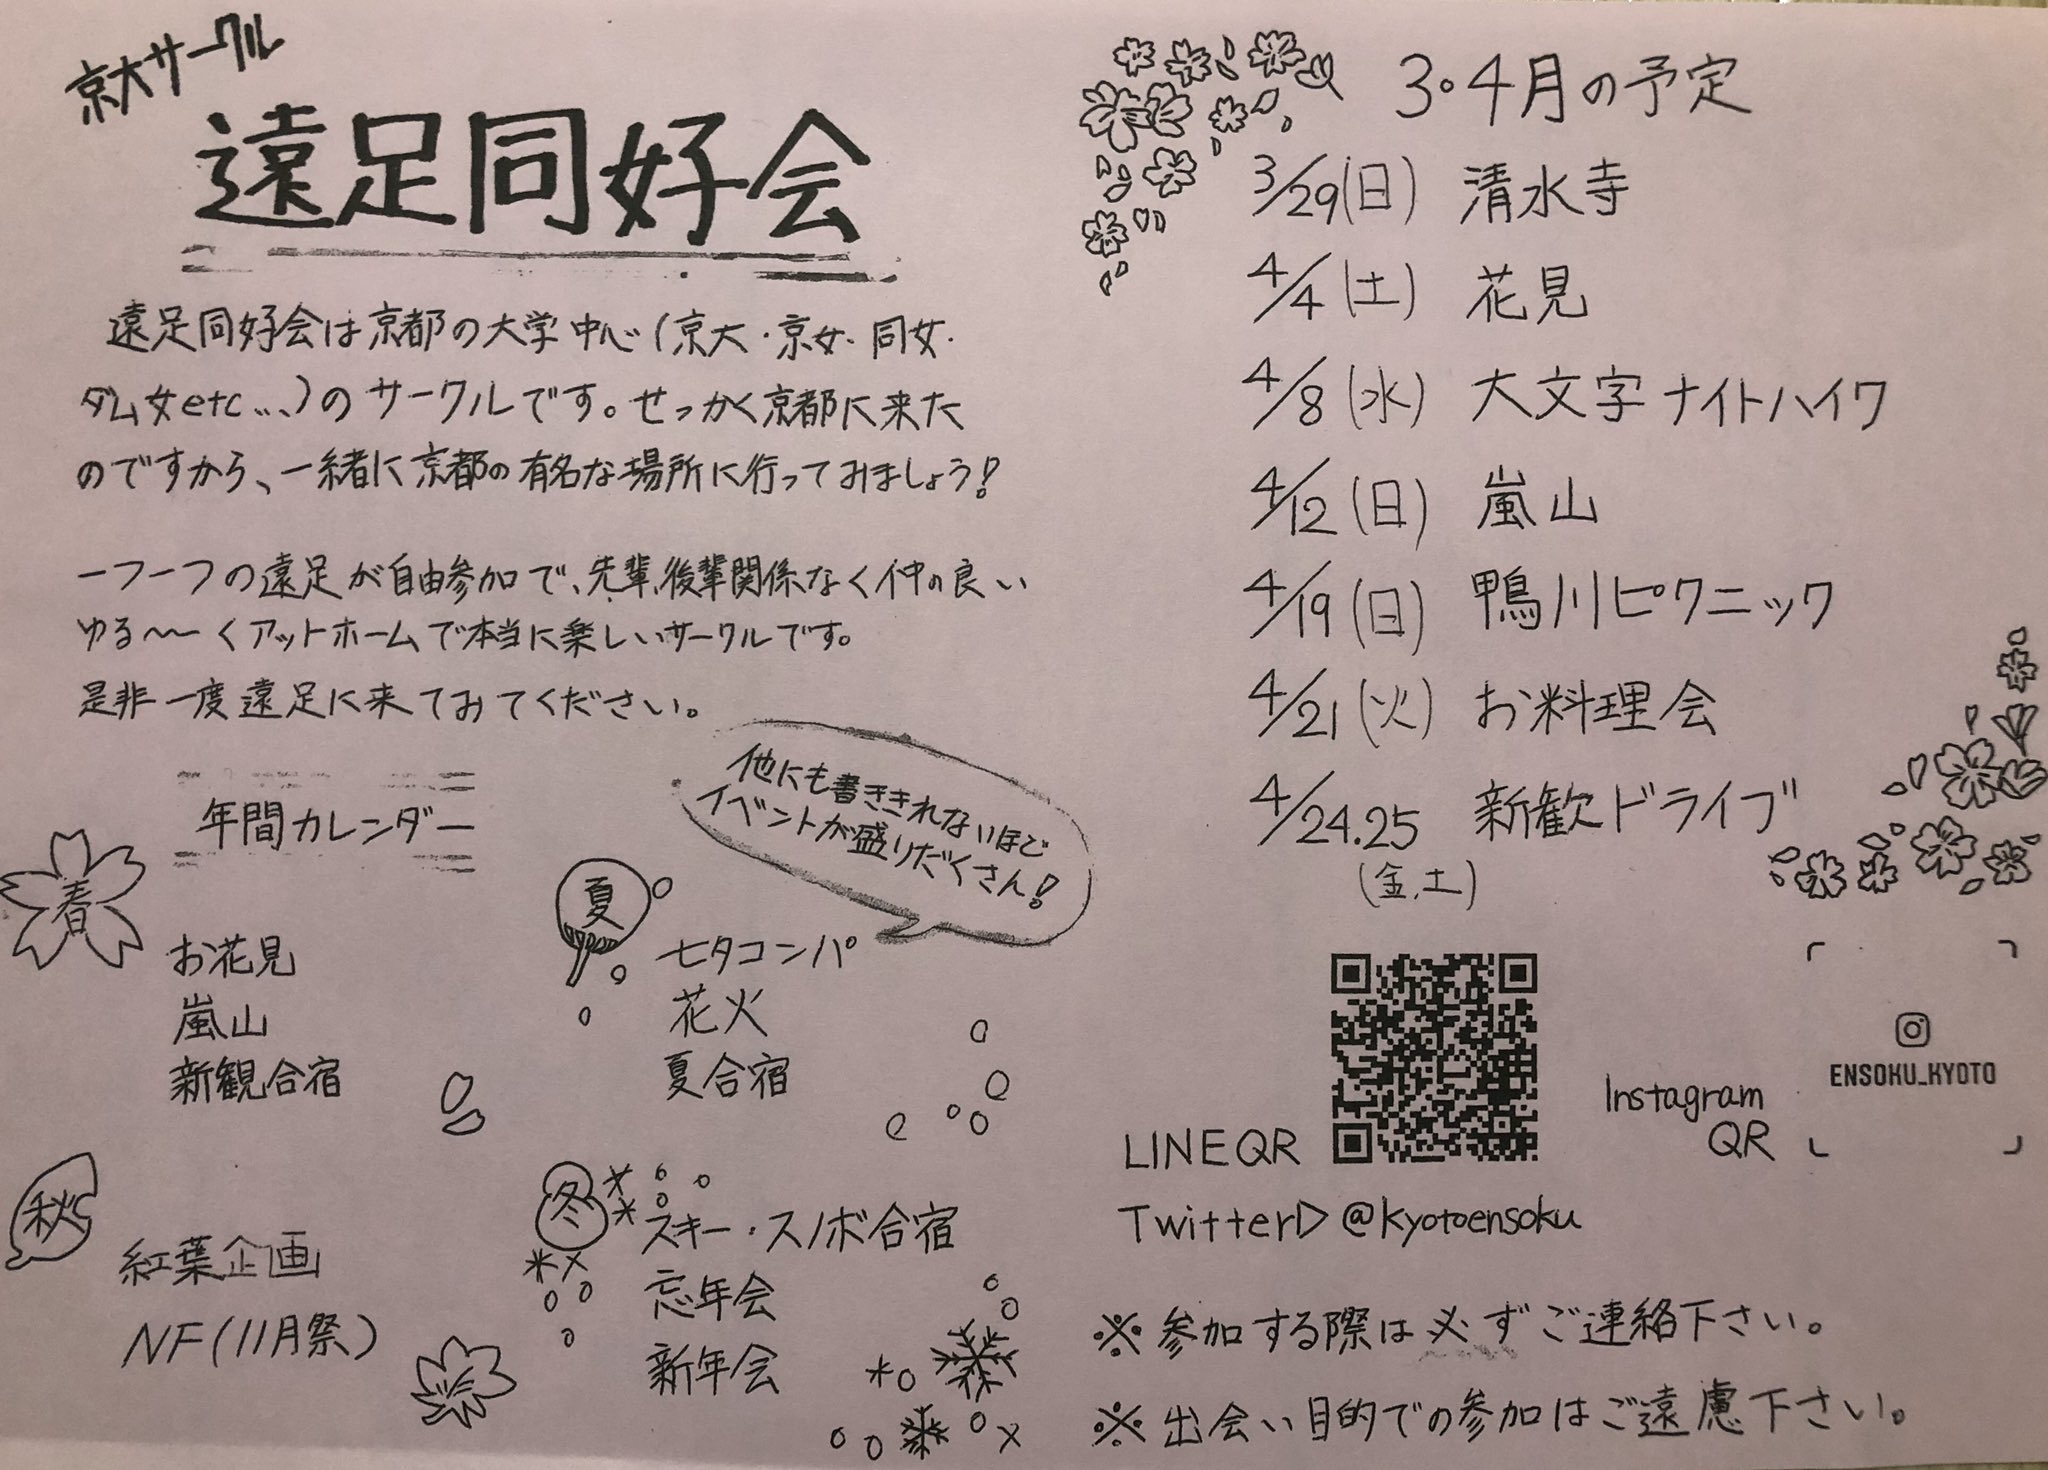 京大サークル
遠足同好会
遠足同好会は京都の大学中心(京大・京女・同女・
ダム女etc...)のサークルです。せっかく京都に来た
のですから、一緒に京都の有名な場所に行ってみましょう!
一つ一つの遠足が自由参加で、先輩、後輩関係なく仲の良い
ゆる〜〜くアットホームで本当に楽しいサークルです。
是非一度遠足に来てみてください。
年間カレンダー
他にも書ききれないほど
イベントが盛りだくさん!
春
お花見
嵐山
新観合宿
夏
七夕コンパ
花火
夏合宿
秋
紅葉企画
NF(11月祭)
冬
スキー・スノボ合宿
忘年会
新年会
3・4月の予定
3/29(日) 清水寺
4/4(土) 花見
4/8(水) 大文字ナイトハイク
4/12(日) 嵐山
4/19(日) 鴨川ピクニック
4/21(火) お料理会
4/24.25 新歓ドライブ
(金,土)
LINEQR
Instagram
QR
ENSOKU_KYOTO
Twitter▷ @kyotoensoku
※参加する際は必ずご連絡下さい。
※出会い目的での参加はご遠慮下さい。